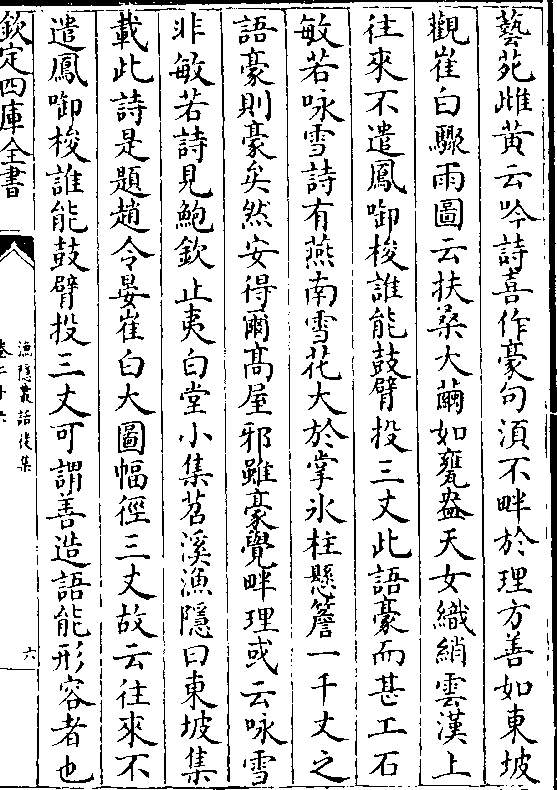 藝苑雌黄云吟詩喜作豪句湏不畔於理方善如東坡
觀崔白驟雨圖云扶桑大繭如甕盎天女織綃雲漢上
往來不遣鳳啣梭誰能鼓臂投三丈此語豪而甚工石
敏若咏雪詩有燕南雪花大於掌氷柱懸簷一千丈之
語豪則豪矣然安得爾髙屋邪雖豪覺畔理或云咏雪
非敏若詩見鮑欽止夷白堂小集苕溪漁隱曰東坡集
載此詩是題趙令晏崔白大圖幅徑三丈故云往來不
遣鳳啣梭誰能鼓臂投三丈可謂善造語能形容者也
欽定四庫全書
漁隱叢話後集
卷二十六
六